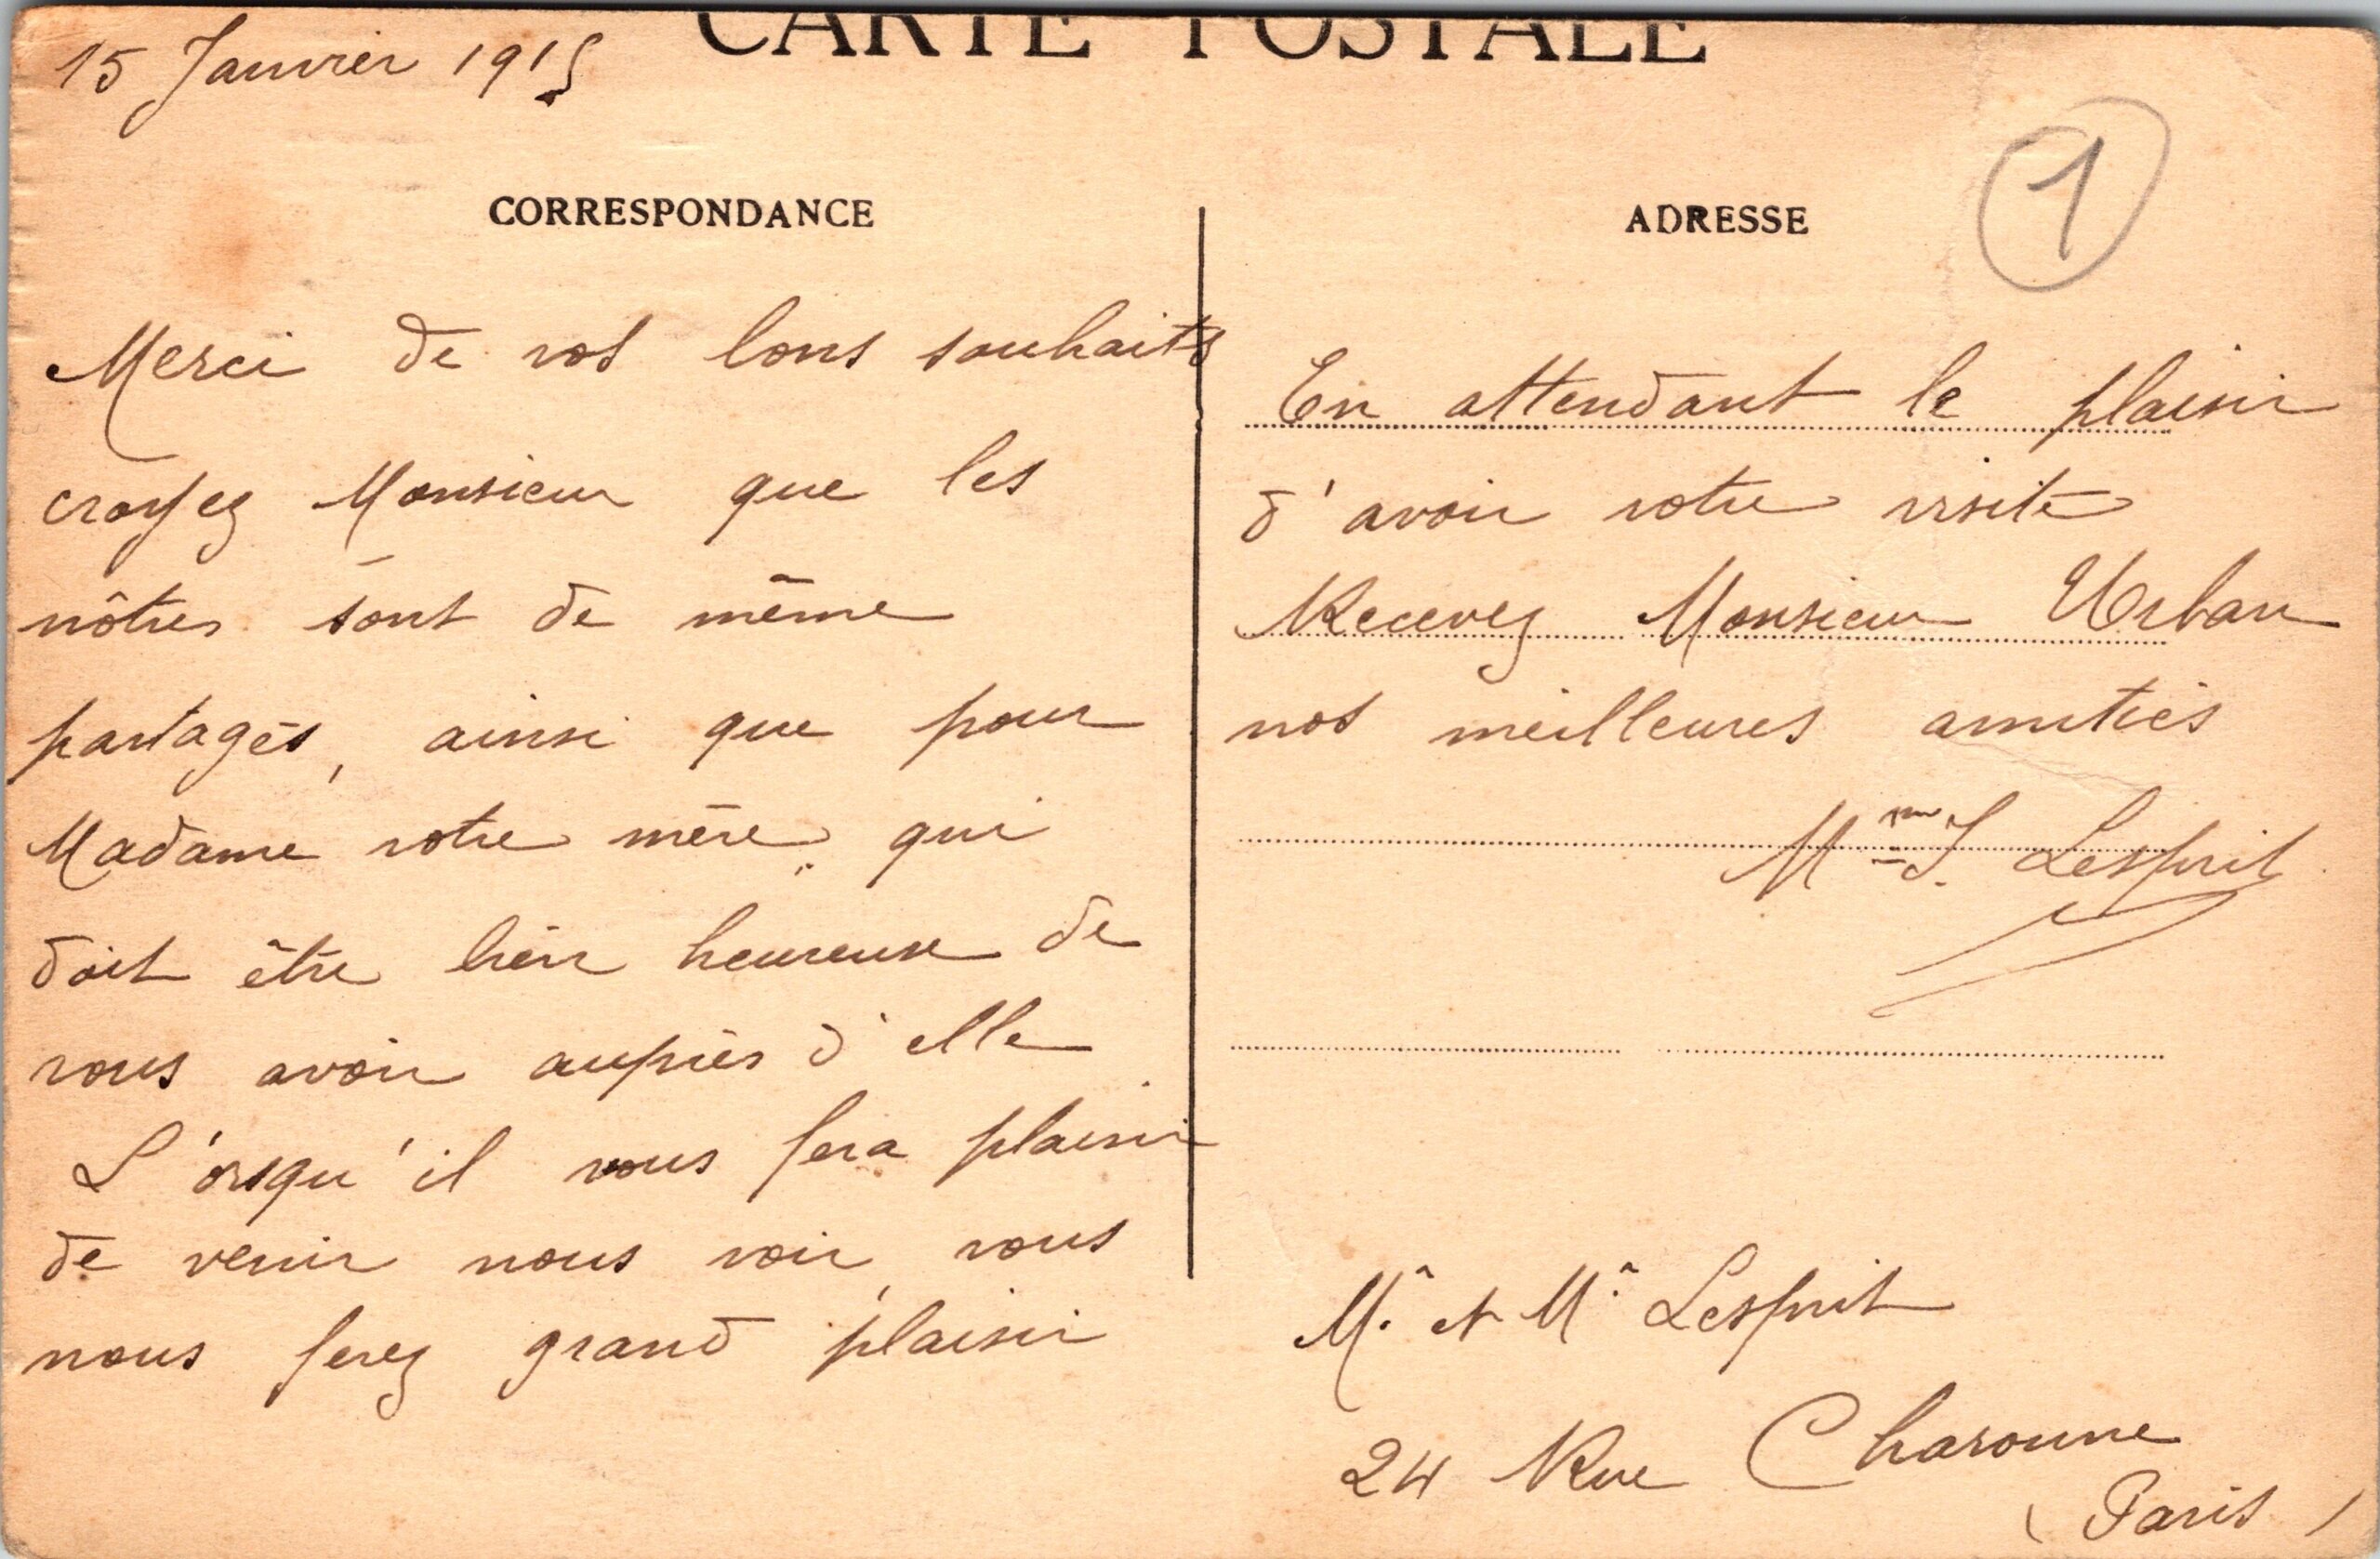 CARTE POSTALE
15 Janvier 1915
CORRESPONDANCE
Merci de vos bons souhaits
croyez Monsieur que les
nôtres sont de même
partagés, ainsi que pour
Madame votre mère qui
doit être bien heureuse de
vous avoir auprès d'elle
L'orsqu'il vous fera plaisir
de venir nous voir, vous
nous ferez grand plaisir
ADRESSE
1
En attendant le plaisir
d'avoir votre visite
Recevez Monsieur Urban
nos meilleures amitiés
Mme J. Lesprit
Mr et Mr Lesprit
24 Rue Charonne
(Paris)